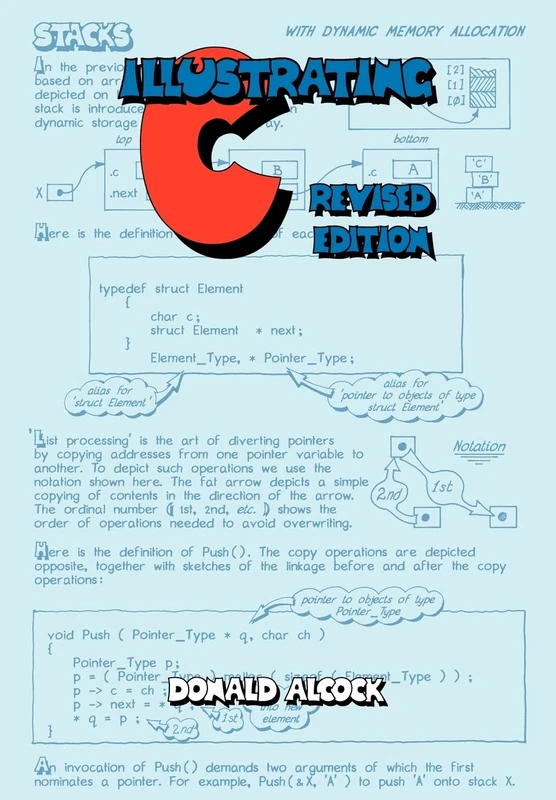 STACKS
WITH DYNAMIC MEMORY ALLOCATION
ILLUSTRATING
C
REVISED
EDITION
In the previo
based on arr
depicted on
stack is introduce
dynamic storage ay.
[2]
[1]
[0]
top
bottom
X
.c
.next
B
.c
A
'C'
'B'
'A'
Here is the definition of eac
typedef struct Element
{
char c;
struct Element * next;
}
Element_Type, * Pointer_Type;
alias for
'struct Element'
alias for
'pointer to objects of type
struct Element'
'List processing' is the art of diverting pointers
by copying addresses from one pointer variable to
another. To depict such operations we use the
notation shown here. The fat arrow depicts a simple
copying of contents in the direction of the arrow.
The ordinal number ( 1st, 2nd, etc. ) shows the
order of operations needed to avoid overwriting.
Notation
2nd
1st
Here is the definition of Push(). The copy operations are depicted
opposite, together with sketches of the linkage before and after the copy
operations:
pointer to objects of type
Pointer_Type
void Push ( Pointer_Type * q, char ch )
{
Pointer_Type p;
p = ( Pointer_Type ) malloc ( sizeof ( Element_Type ) ) ;
p -> c = ch ;
p -> next = * q ;
* q = p ;
}
1st
2nd
into new
element
DONALD ALCOCK
An invocation of Push() demands two arguments of which the first
nominates a pointer. For example, Push(&X, 'A' ) to push 'A' onto stack X.